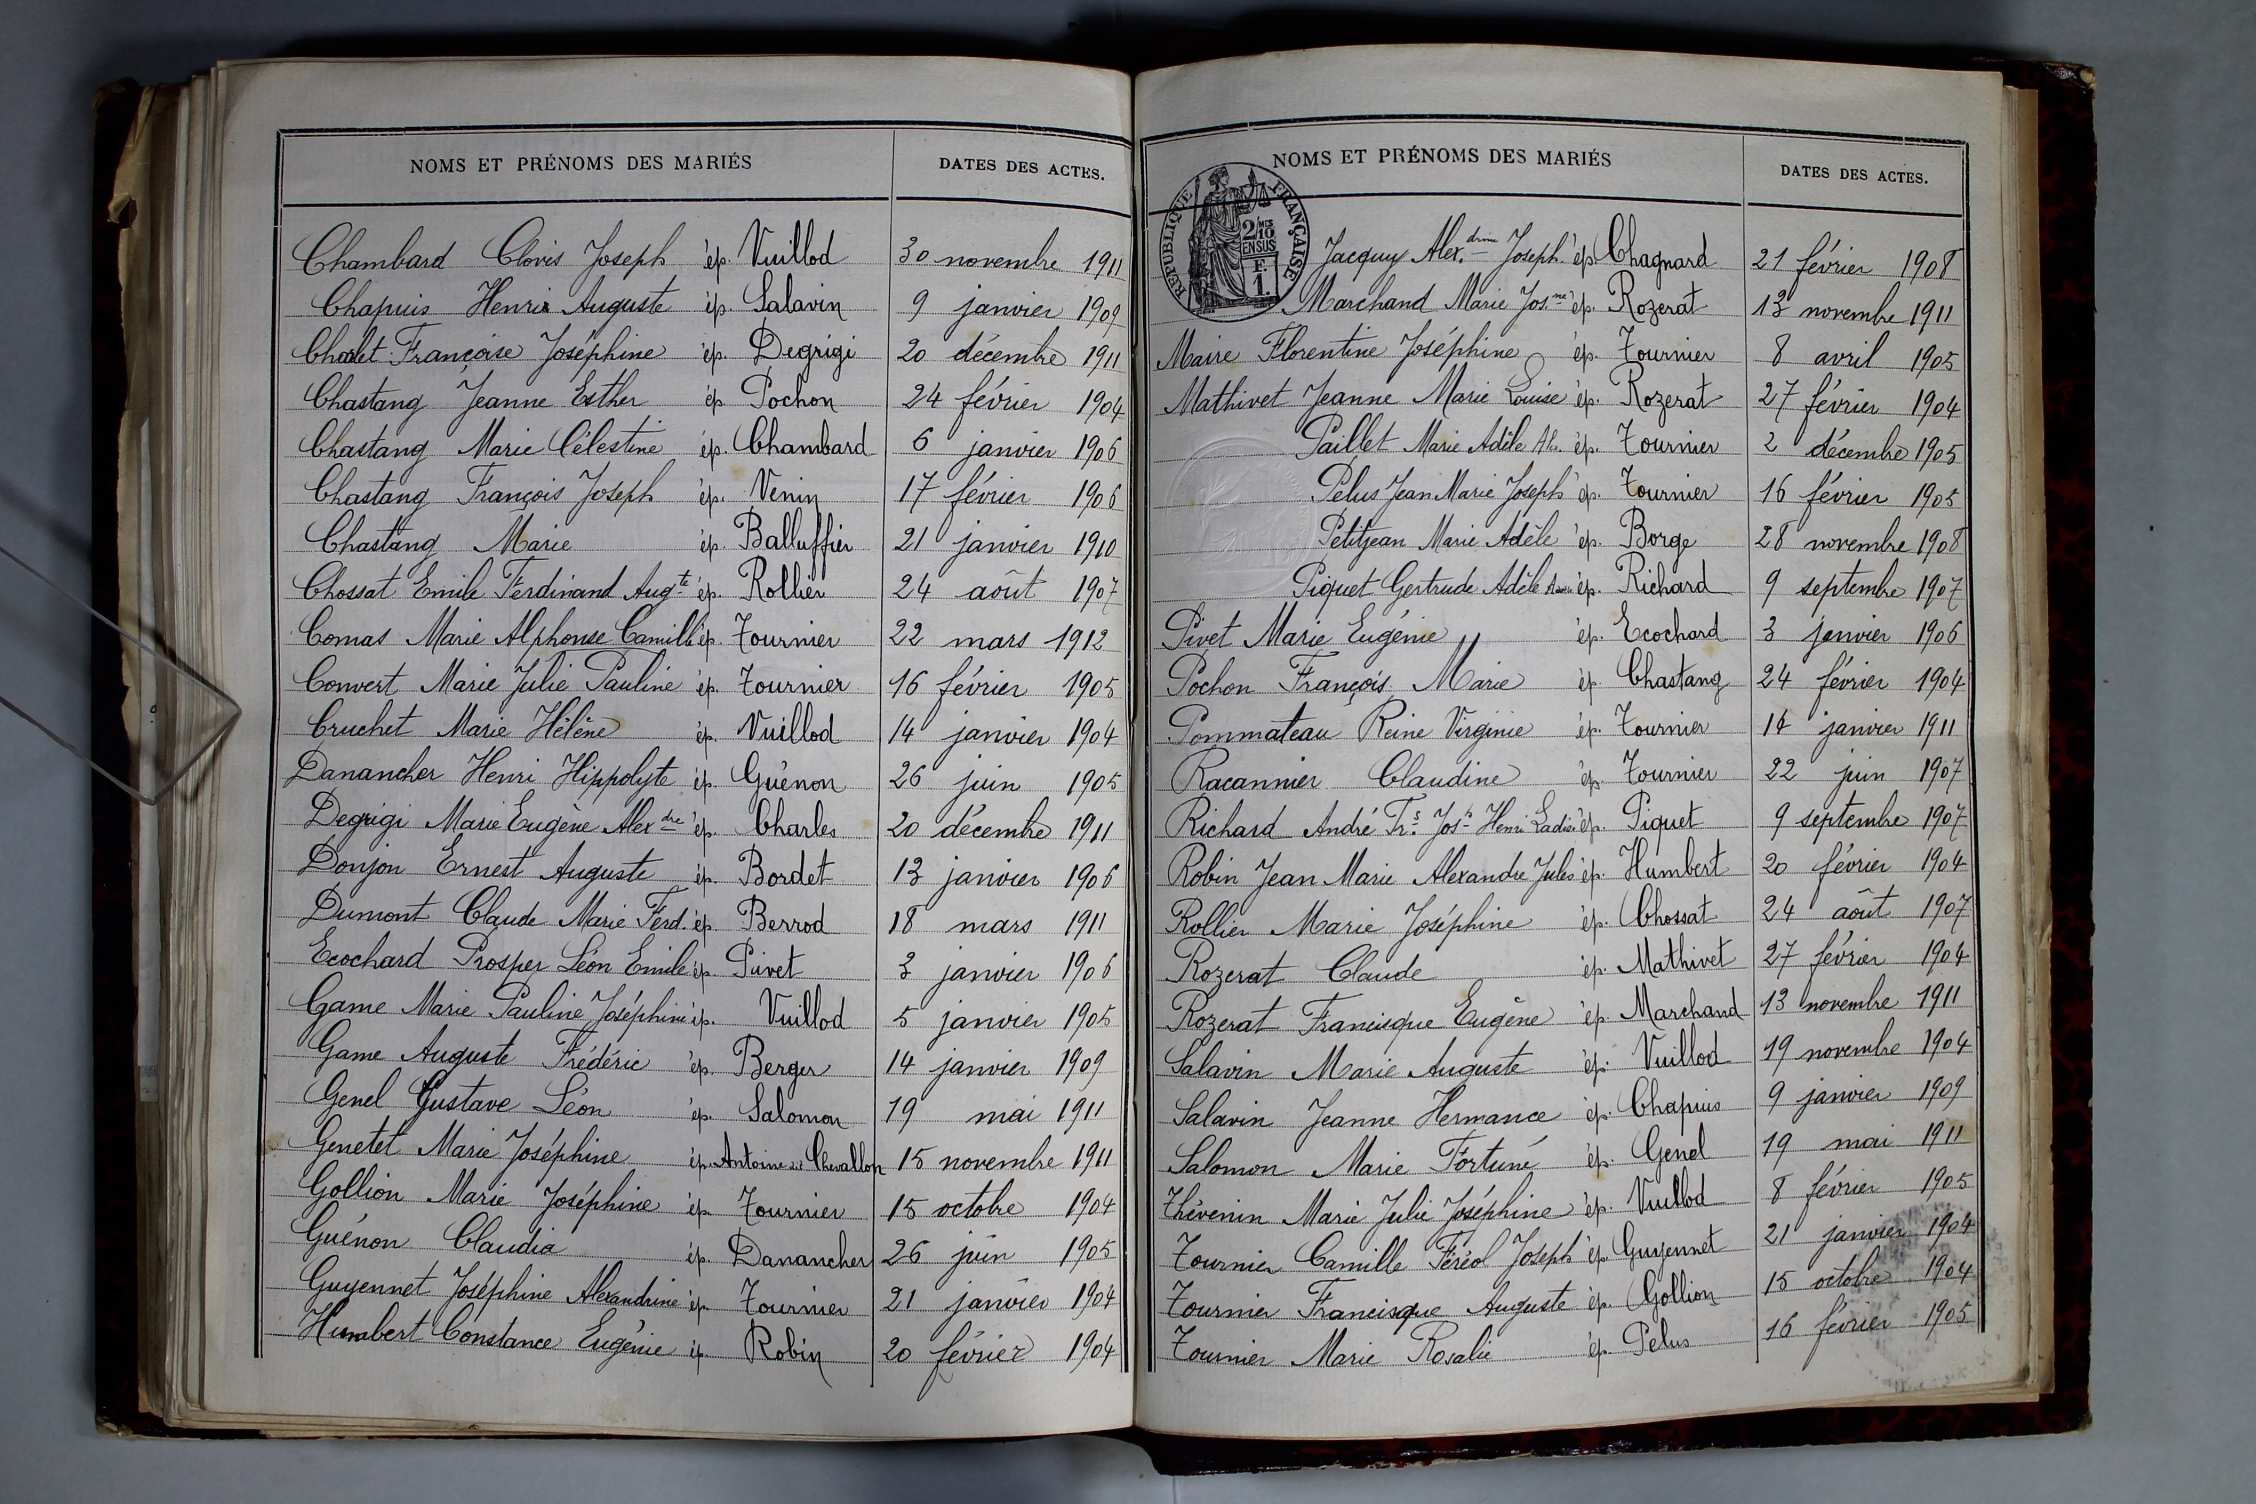 NOMS ET PRÉNOMS DES MARIÉS DATES DES ACTES.
Chambard Clovis Joseph ép. Vuillod 30 novembre 1911
Chapuis Henri Auguste ép. Salavin 9 janvier 1909
Françoise Joséphine ép. Degrigi 20 décembre 1911
Chastang Jeanne Esther ép Pochon 24 février 1904
Chastang Marie Célestine ép. Chambard 6 janvier 1906
Chastang François Joseph ép. Venin 17 février 1906
Chastang Marie ép. Balluffier 21 janvier 1910
Chossat Emile Ferdinand Augte ép. Rollier 24 août 1907
Comas Marie Alphonse Camille ép. Tournier 22 mars 1912
Convert Marie Julie Pauline ép. Tournier 16 février 1905
Cruchet Marie Hélène ép. Vuillod 14 janvier 1904
Danancher Henri Hippolyte ép. Guénon 26 juin 1905
Degrigi Marie Eugène Alexdre ép. Charles 20 décembre 1911
Donjon Ernest Auguste ép. Bordet 13 janvier 1906
Dumont Claude Marie Ferd. ép. Berrod 18 mars 1911
Ecochard Prosper Léon Emile ép. Pivet 3 janvier 1906
Game Marie Pauline Joséphine ép. Vuillod 5 janvier 1905
Game Auguste Frédéric ép. Berger 14 janvier 1909
Genel Gustave Léon ép. Salomon 19 mai 1911
Genetet Marie Joséphine ép. Antoine dit Chevallon 15 novembre 1911
Gollion Marie Joséphine ép. Tournier 15 octobre 1904
Guénon Claudia ép. Danancher 26 juin 1905
Guyennet Joséphine Alexandrine ép. Tournier 21 janvier 1904
Humbert Constance Eugénie ép. Robin 20 février 1904
NOMS ET PRÉNOMS DES MARIÉS DATES DES ACTES.
REPUBLIQUE FRANÇAISE
2/10MES
EN SUS
F.
1.
Jacquy Alex.drine Joseph. ép. Chagnard 21 février 1908
Marchand Marie Josne ép. Rozerat 13 novembre 1911
Maire Florentine Joséphine ép. Tournier 8 avril 1905
Mathivet Jeanne Marie Louise ép. Rozerat 27 février 1904
Paillet Marie Adèle ép. Tournier 2 décembre 1905
Pelus Jean Marie Joseph ép. Tournier 16 février 1905
Petitjean Marie Adèle ép. Borge 28 novembre 1908
Piquet Gertrude Adèle ép. Richard 9 septembre 1907
Pivet Marie Eugénie ép. Ecochard 3 janvier 1906
Pochon François Marie ép. Chastang 24 février 1904
Pommateau Reine Virginie ép. Tournier janvier 1911
Racannier Claudine ép. Tournier 22 juin 1907
Richard André Frs. Josh Henri Ladis. ép. Piquet 9 septembre 1907
Robin Jean Marie Alexandre Jules ép. Humbert 20 février 1904
Rollier Marie Joséphine ép. Chossat 24 août 1907
Rozerat Claude ép. Mathivet 27 février 1904
Rozerat Francisque Eugène ép. Marchand 13 novembre 1911
Salavin Marie Auguste ép. Vuillod 19 novembre 1904
Salavin Jeanne Hermance ép. Chapuis 9 janvier 1909
Salomon Marie Fortuné ép. Genel 19 mai 1911
Thévenin Marie Julie Joséphine ép. Vuillod 8 février 1905
Tournier Camille Féréol Joseph ép. Guyennet 21 janvier 1904
Tournier Francisque Auguste ép. Gollion 15 octobre 1904
Tournier Marie Rosalie ép. Pelus 16 février 1905